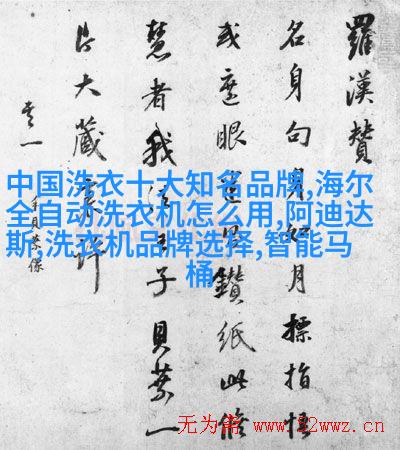 羅漢贊
名身句身如月標指
或遮眼是鑽紙此脩
慧者我子貝葉一
片大藏
中国洗衣十大知名品牌,海尔
全自动洗衣机怎么用,阿迪达
斯,洗衣机品牌选择,智能马
桶
无为斋 www.52wwz.cn